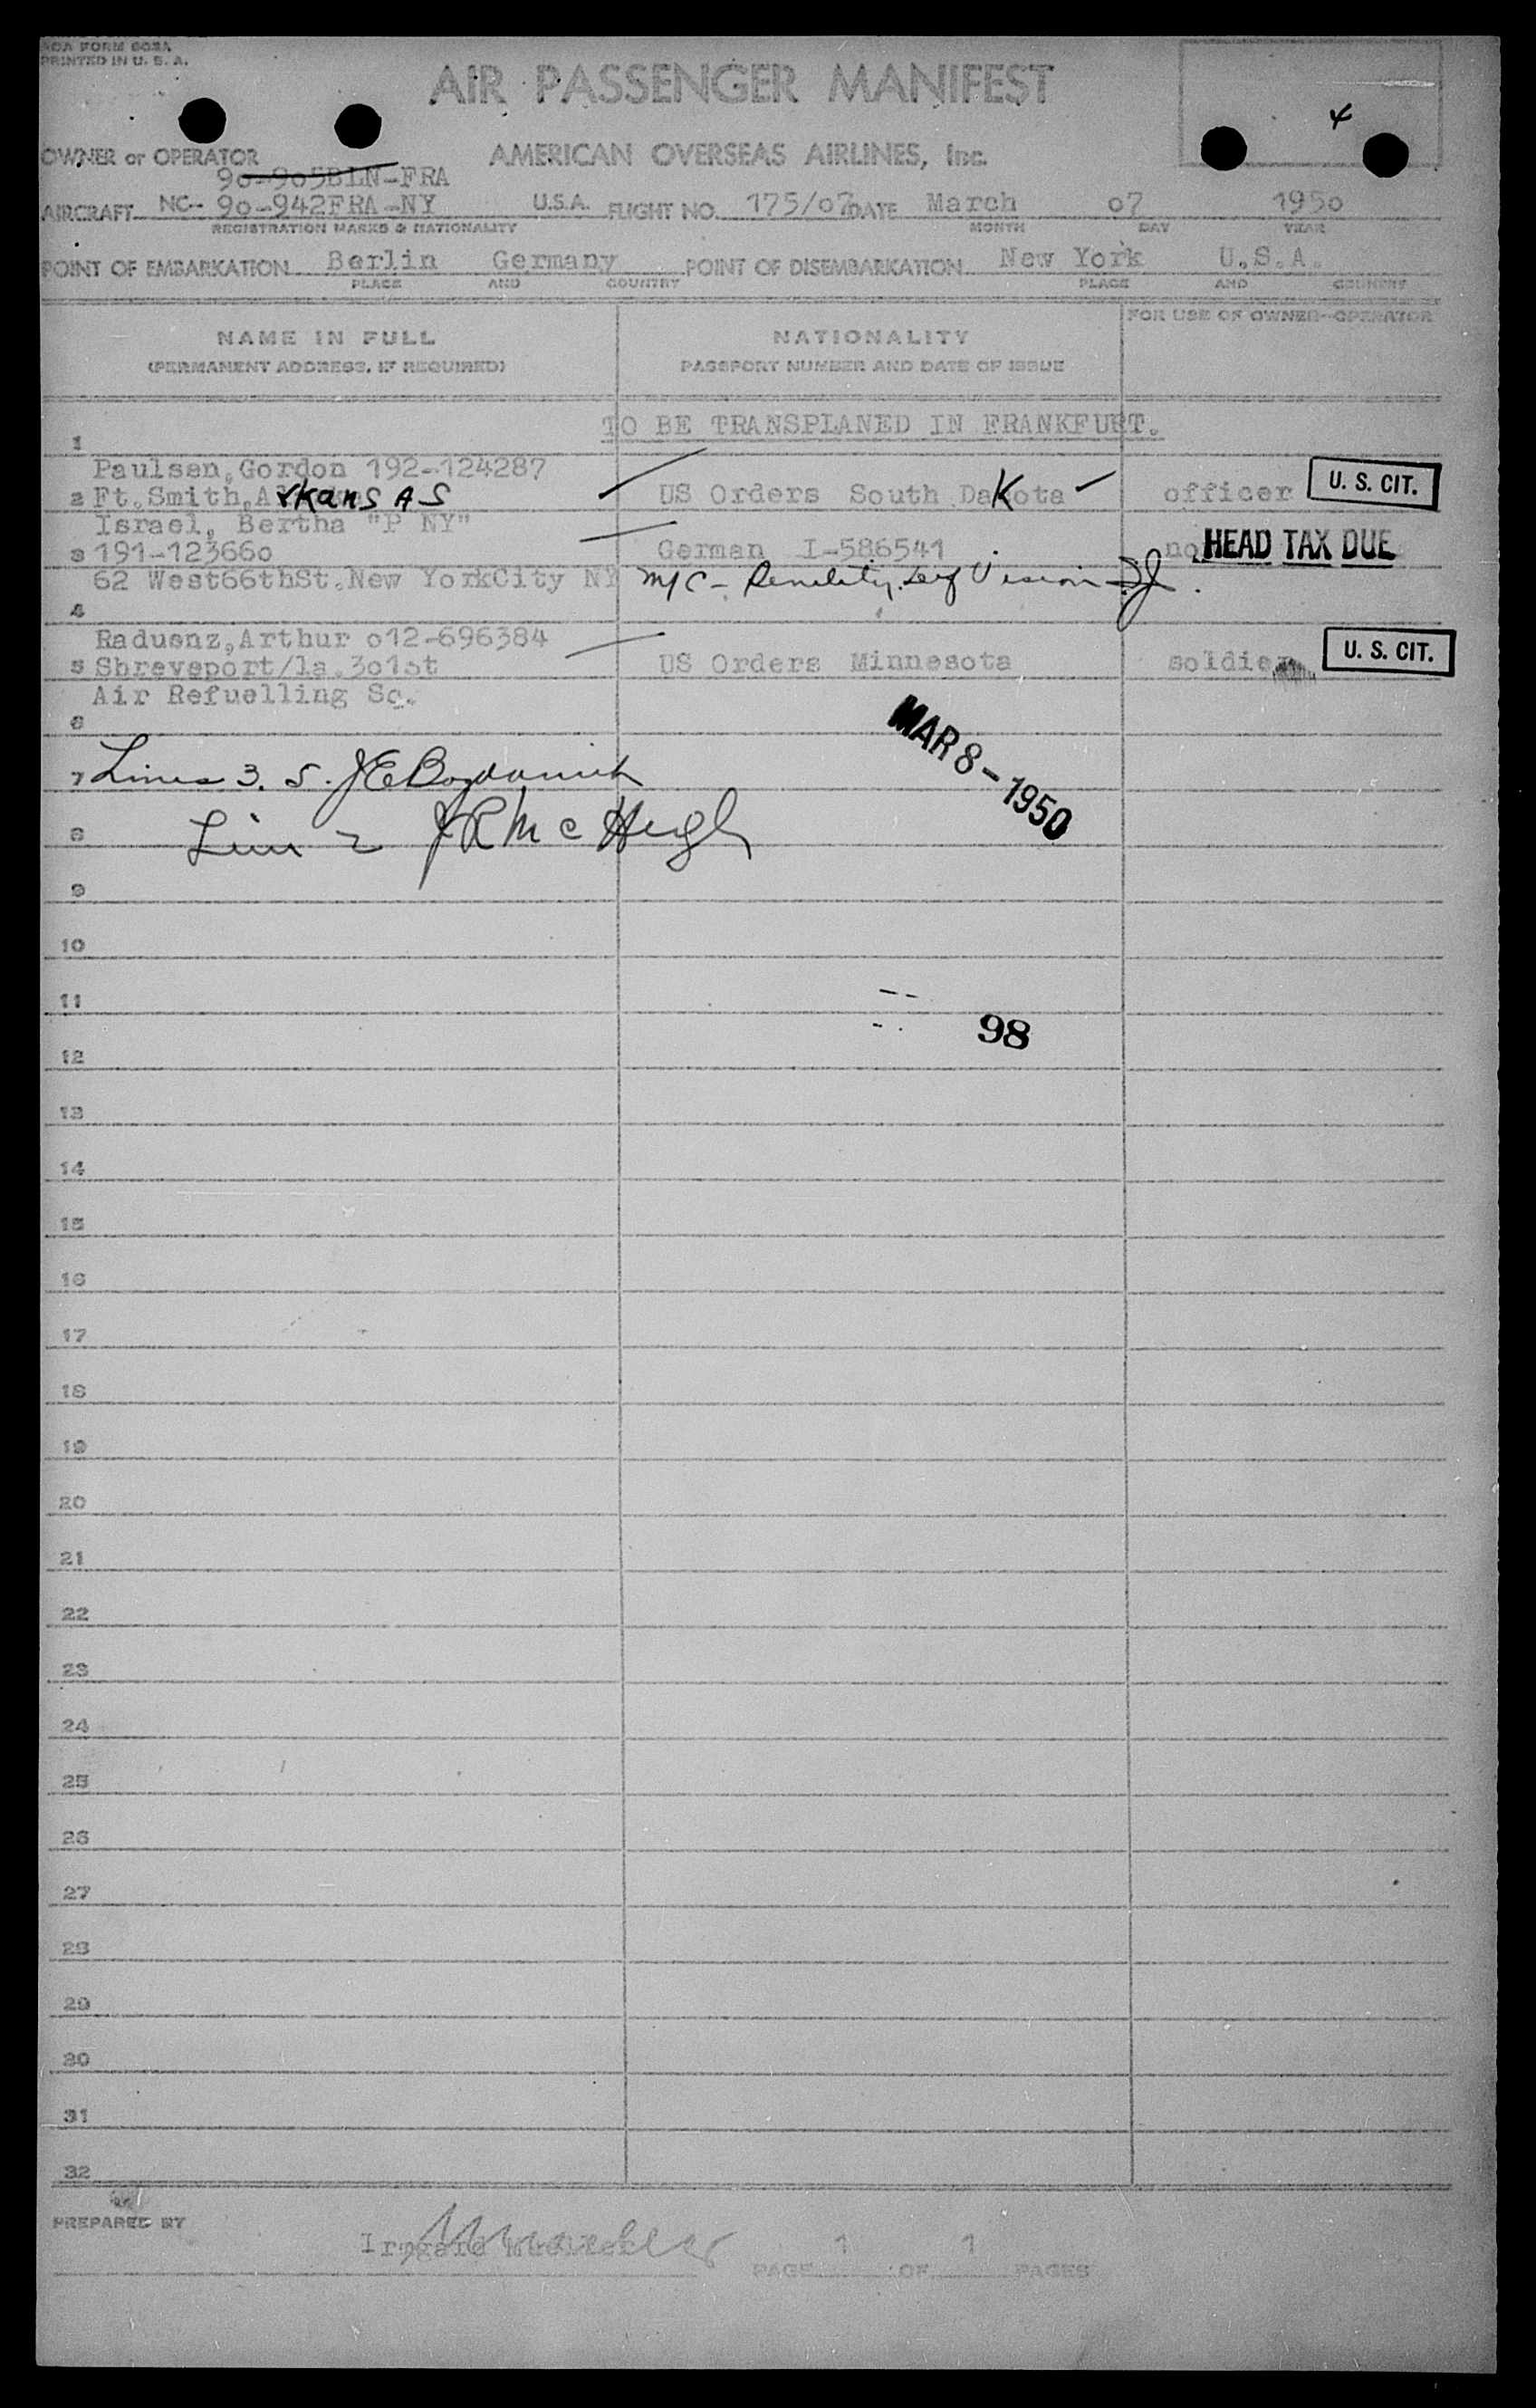 AOA FORM 603A
PRINTED IN U. S. A.
AIR PASSENGER MANIFEST
4
OWNER or OPERATOR AMERICAN OVERSEAS AIRLINES, Inc.
90-905BLN-FRA
AIRCRAFT NC- 90-942FRA-NY U.S.A. FLIGHT NO. 175/07 DATE March 07 1950
REGISTRATION MARKS & NATIONALITY MONTH DAY YEAR
POINT OF EMBARKATION Berlin Germany POINT OF DISEMBARKATION New York U.S.A.
PLACE AND COUNTRY PLACE AND COUNTRY
NAME IN FULL NATIONALITY FOR USE OF OWNER-OPERATOR
(PERMANENT ADDRESS, IF REQUIRED) PASSPORT NUMBER AND DATE OF ISSUE
1 TO BE TRANSPLANED IN FRANKFURT.
Paulsen,Gordon 192-124287
2 Ft.Smith,Arkansas US Orders South Dakota officer U. S. CIT.
Israel, Bertha "P NY"
3 191-123660 German I-586541 HEAD TAX DUE
62 West66thSt.New YorkCity NY M/C - Vision
4
Raduenz,Arthur 012-696384
5 Shreveport/la.301st US Orders Minnesota soldier U. S. CIT.
Air Refuelling Sq.
6
MAR 8 - 1950
7 Lines 3. 5. JE Bogdanich
8 Line 2 JR McHugh
9
10
11
98
12
13
14
15
16
17
18
19
20
21
22
23
24
25
26
27
28
29
30
31
32
PREPARED BY
Irmgard PAGE 1 OF 1 PAGES